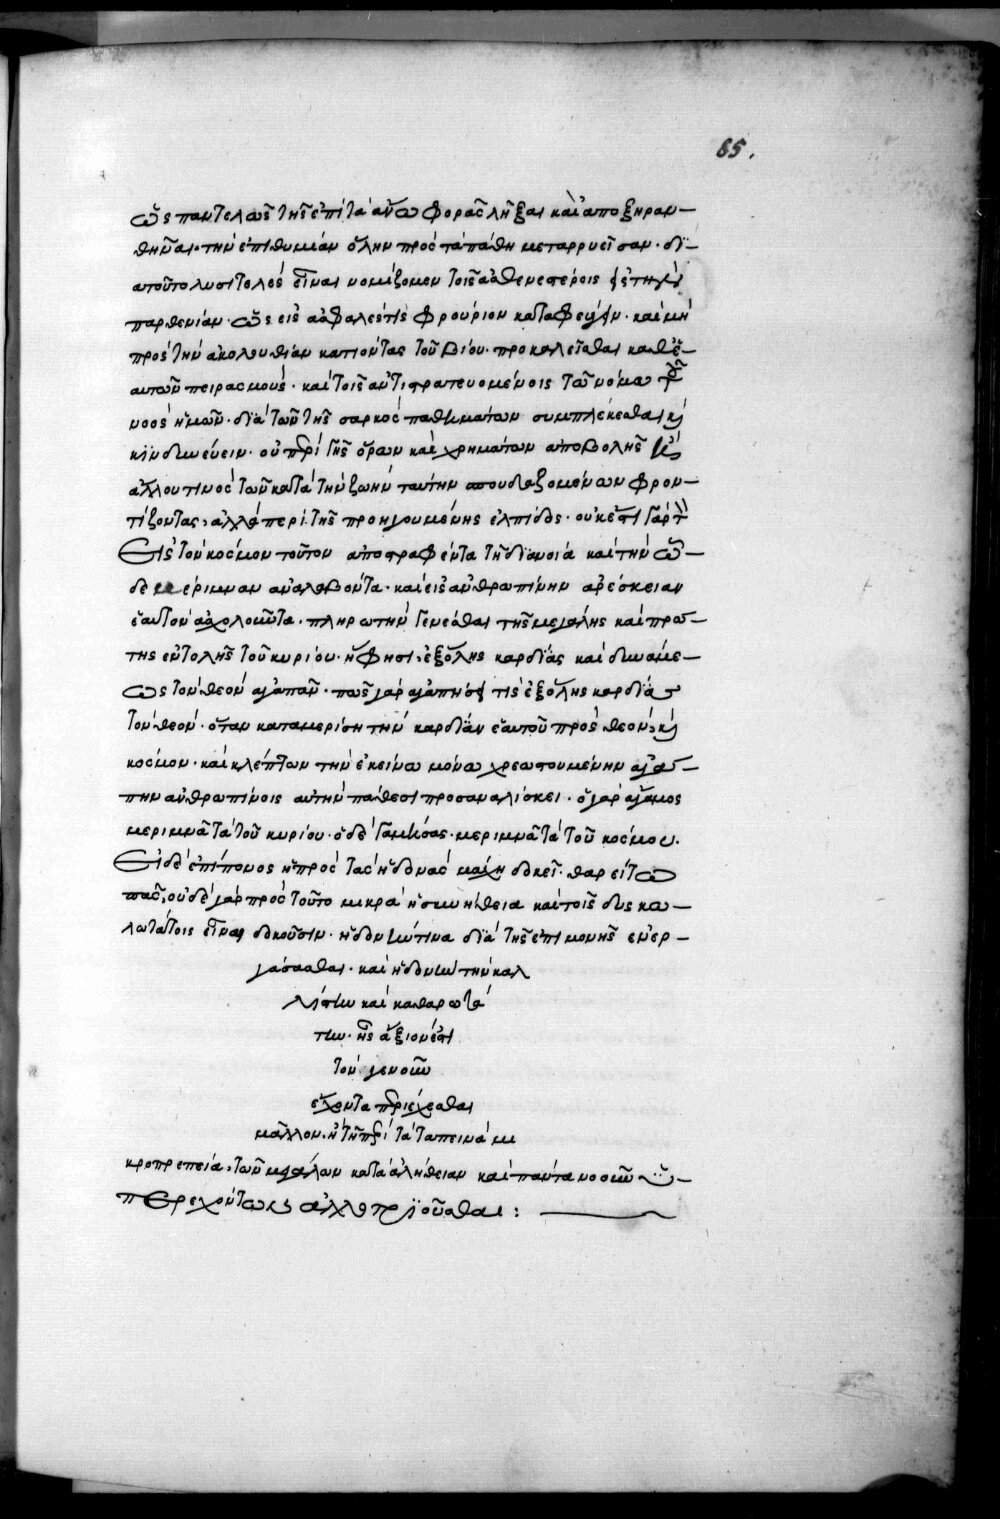 85.
ὥς παντελῶς τῆς ἐπὶ τὰ ἄνω φορᾶς λῆξαι καὶ ἀποξηραν-
θῆναι· τὴν ἐπιθυμίαν ὅλην πρὸς τὰ πάθη μεταρρυεῖσαν· δι-
ατοῦτο λυσιτελὲς εἶναι νομίζομεν τοῖς ἀσθενεστέροις ἐς τὴν
παρθενίαν· ὥς εἰς ἀσφαλές τις φρούριον καταφεύγειν· καὶ μὴ
πρὸς τὴν ἀκολουθίαν κατιόντας τοῦ βίου· προκαλεῖσθαι καθ' ἑ-
αυτῶν πειρασμούς· καὶ τοῖς ἀντιστρατευομένοις τῶ νόμω τοῦ
νοὸς ἡμῶν· διὰ τῶν τῆς σαρκὸς παθημάτων συμπλέκεσθαι καὶ
κινδυνεύειν· οὐ περὶ γῆς ὅρων καὶ χρημάτων ἀποβολῆς
ἄλλου τινὸς τῶν κατὰ τὴν ζωὴν ταύτην σπουδαζομένων φρον-
τίζοντας, ἀλλὰ περὶ τῆς προηγουμένης ἐλπίδος· οὐκ ἔστι γὰρ τ
Εἰς τὸν κόσμον τοῦτον ἀποστραφέντα τῆ διανοία καὶ τὴν ὧ-
δε μέριμναν ἀναλαβόντα· καὶ εἰς ἀνθρωπίνην ἀρέσκειαν
ἑαυτὸν ἀσχολοῦντα· πληρωτὴν γενέσθαι τῆς μεγάλης καὶ πρώ-
της ἐντολῆς τοῦ κυρίου· ἥ φησι, ἐξ ὅλης καρδίας καὶ δυνάμε-
ως τὸν θεὸν ἀγαπᾶν· πῶς γὰρ ἀγαπήσει τις ἐξ ὅλης καρδίας
τὸν θεόν· ὅταν καταμερίση τὴν καρδίαν ἑαυτοῦ πρὸς θεὸν, καὶ
κόσμον· καὶ κλέπτων τὴν ἐκείνω μόνω χρεωστουμένην ἀγά-
πην ἀνθρωπίνοις αὐτὴν πάθεσι προσαναλίσκει· ὁ γὰρ ἄγαμος
μεριμνᾶ τὰ τοῦ κυρίου· ὁ δὲ γαμήσας· μεριμνᾶ τὰ τοῦ κόσμου.
Εἰ δὲ ἐπίπονος ἡ πρὸς τὰς ἡδονὰς μάχη δοκεῖ· θαρείτω
πᾶς, οὐδὲ γὰρ πρὸς τοῦτο μικρὰ ἡ συνήθεια καὶ τοῖς δυσκω-
λωτάτοις εἶναι δοκοῦσιν· ἡδονήν τινα διὰ τῆς ἐπιμονῆς ἐνερ-
γάσασθαι· καὶ ἡδονὴν τὴν καλ
λίστην καὶ καθαρωτά
την· ἧς ἄξιόν ἐστι
τὸν γενοῦν
ἔχοντα περιέχεσθαι
μᾶλλον· ἢ τῆ περὶ τὰ ταπεινὰ μι
κροπρεπεία, τῶν μεγάλων κατὰ ἀλήθειαν καὶ πάντα νοῦν ὑ-
περεχόντων ἀλλοτριοῦσθαι: